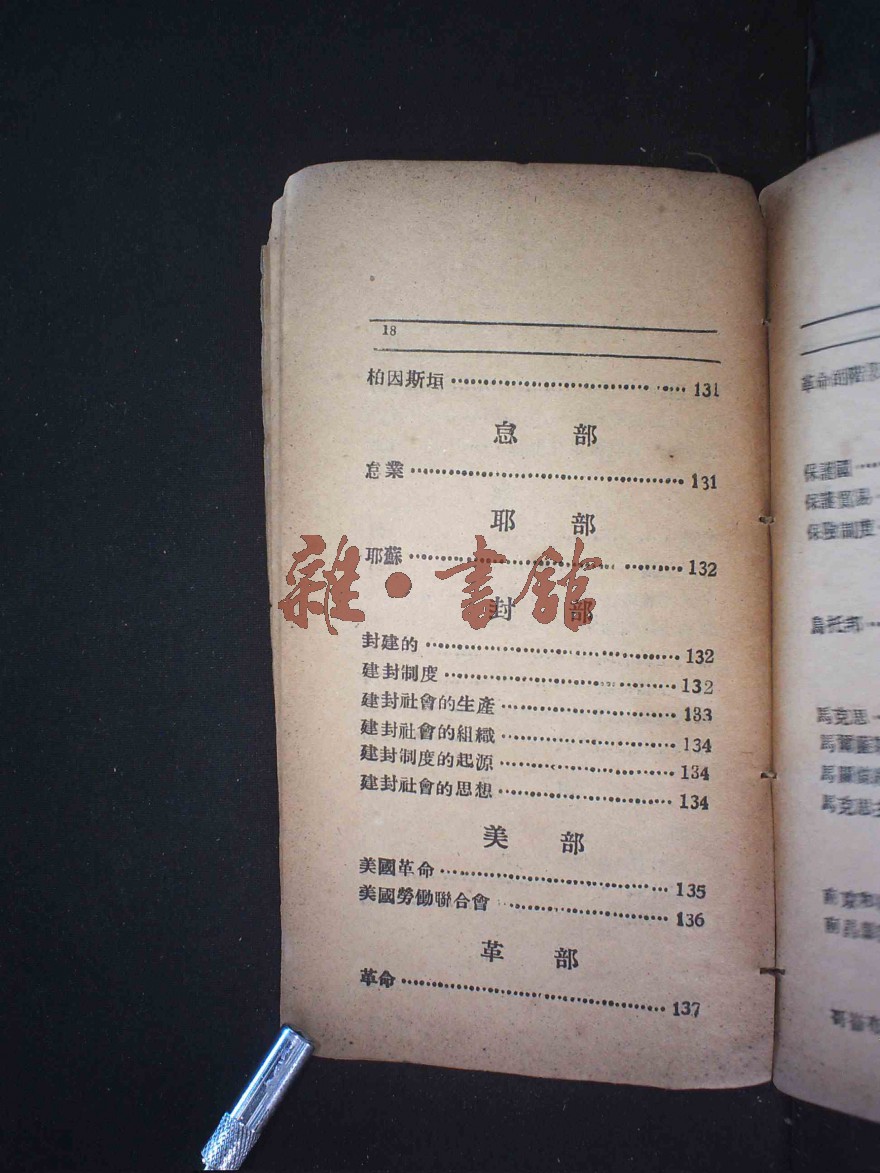 18
柏因斯垣 131
怠 部
怠業 131
耶 部
耶蘇 132
封 部
封建的 132
建封制度 132
建封社會的生產 133
建封社會的組織 134
建封制度的起源 134
建封社會的思想 134
美 部
美國革命 135
美國勞働聯合會 136
革 部
革命 137
雜·書館
革命
保護國
保護貿易
烏托邦
馬克思